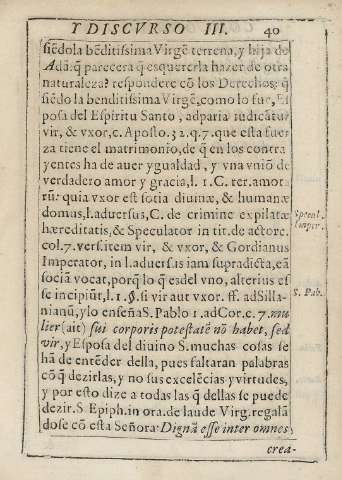 Y DISCVRSO III. 40
siẽdola bẽditissima Virgẽ terrena, y hija de
Adã: q̃ parecera q̃ esquererla hazer de otra
naturaleza? respondere cõ los Derechos: q̃
siẽdo la benditissima Virgẽ, como lo fue, Es
posa del Espiritu Santo, adparia iudicãtur
vir, & vxor, c. Aposto. 32. q. 7. que esta fuer
za tiene el matrimonio, de q̃ en los contra
yentes ha de auer ygualdad, y vna vniõ de
verdadero amor y gracia, l. 1. C. rer. amota
rũ: quia vxor est sotia diuinæ, & humanæ
domus, l. aduersus, C. de crimine expilatæ
hæreditatis, & Speculator in tit. de actore.
col. 7. vers. item vir, & vxor, & Gordianus
Imperator, in l. aduersis iam supradicta, eã
sociã vocat, porq̃ lo q̃ es del vno, alterius es
se incipiũt, l. 1. §. si vir aut vxor. ff. ad Silla-
nianũ, y lo enseña S. Pablo 1. ad Cor. c. 7. mu
lier (ait) sui corporis potestatẽ nõ habet, sed
vir, y Esposa del diuino S. muchas cosas se
hã de entẽder della, pues faltaran palabras
cõ q̃ dezirlas, y no sus excelẽcias y virtudes,
y por esto dize a todas las q̃ dellas se puede
dezir. S. Epiph. in ora. de laude Virg. regalã
dose cõ esta Señora: Dignã esse inter omnes,
crea-
Specul.
Imper.
S. Pab.